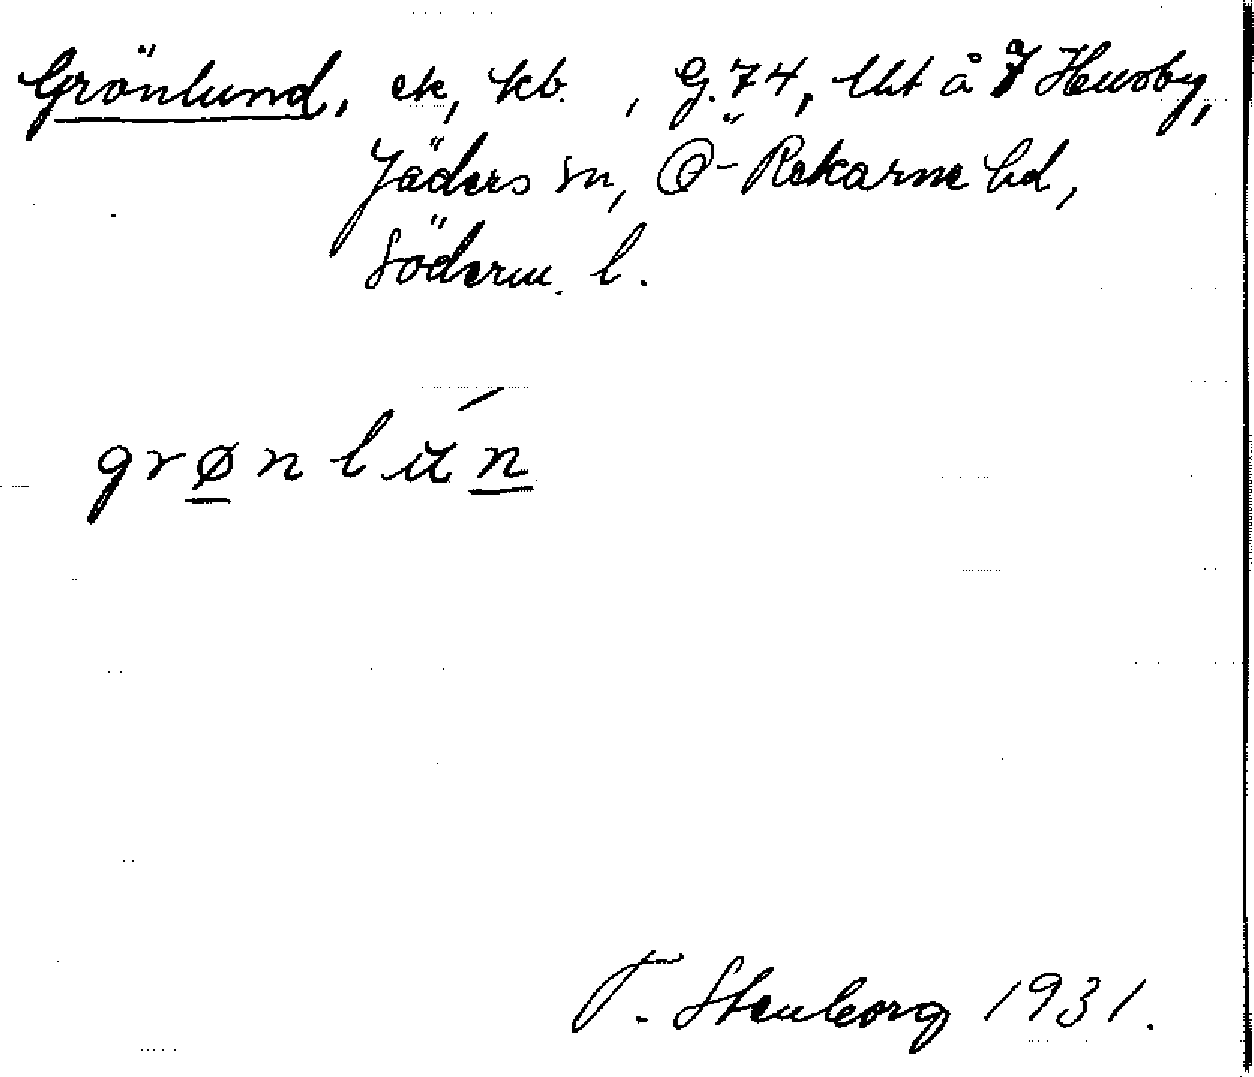 Grönlund, ek, kb. , G.74, lht å 7 Husby,
Jäders sn, Ö-Rekarne hd,
Söderm. l.
grønlún
T. Stenborg 1931.